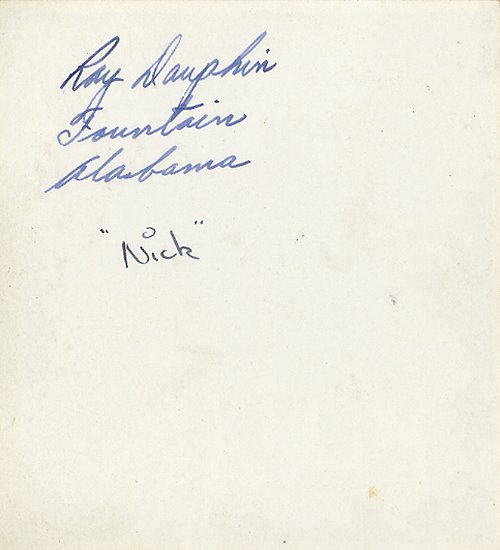 Ray Dauphin
Fountain
Alabama
"Nick"